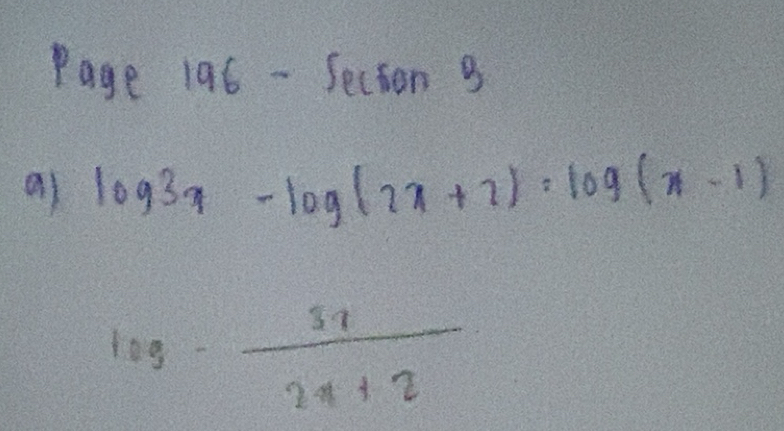 Page 196 - Section 9
a) log3x - log(2x + 2) = log(x - 1)
log - 3x / 2x + 2